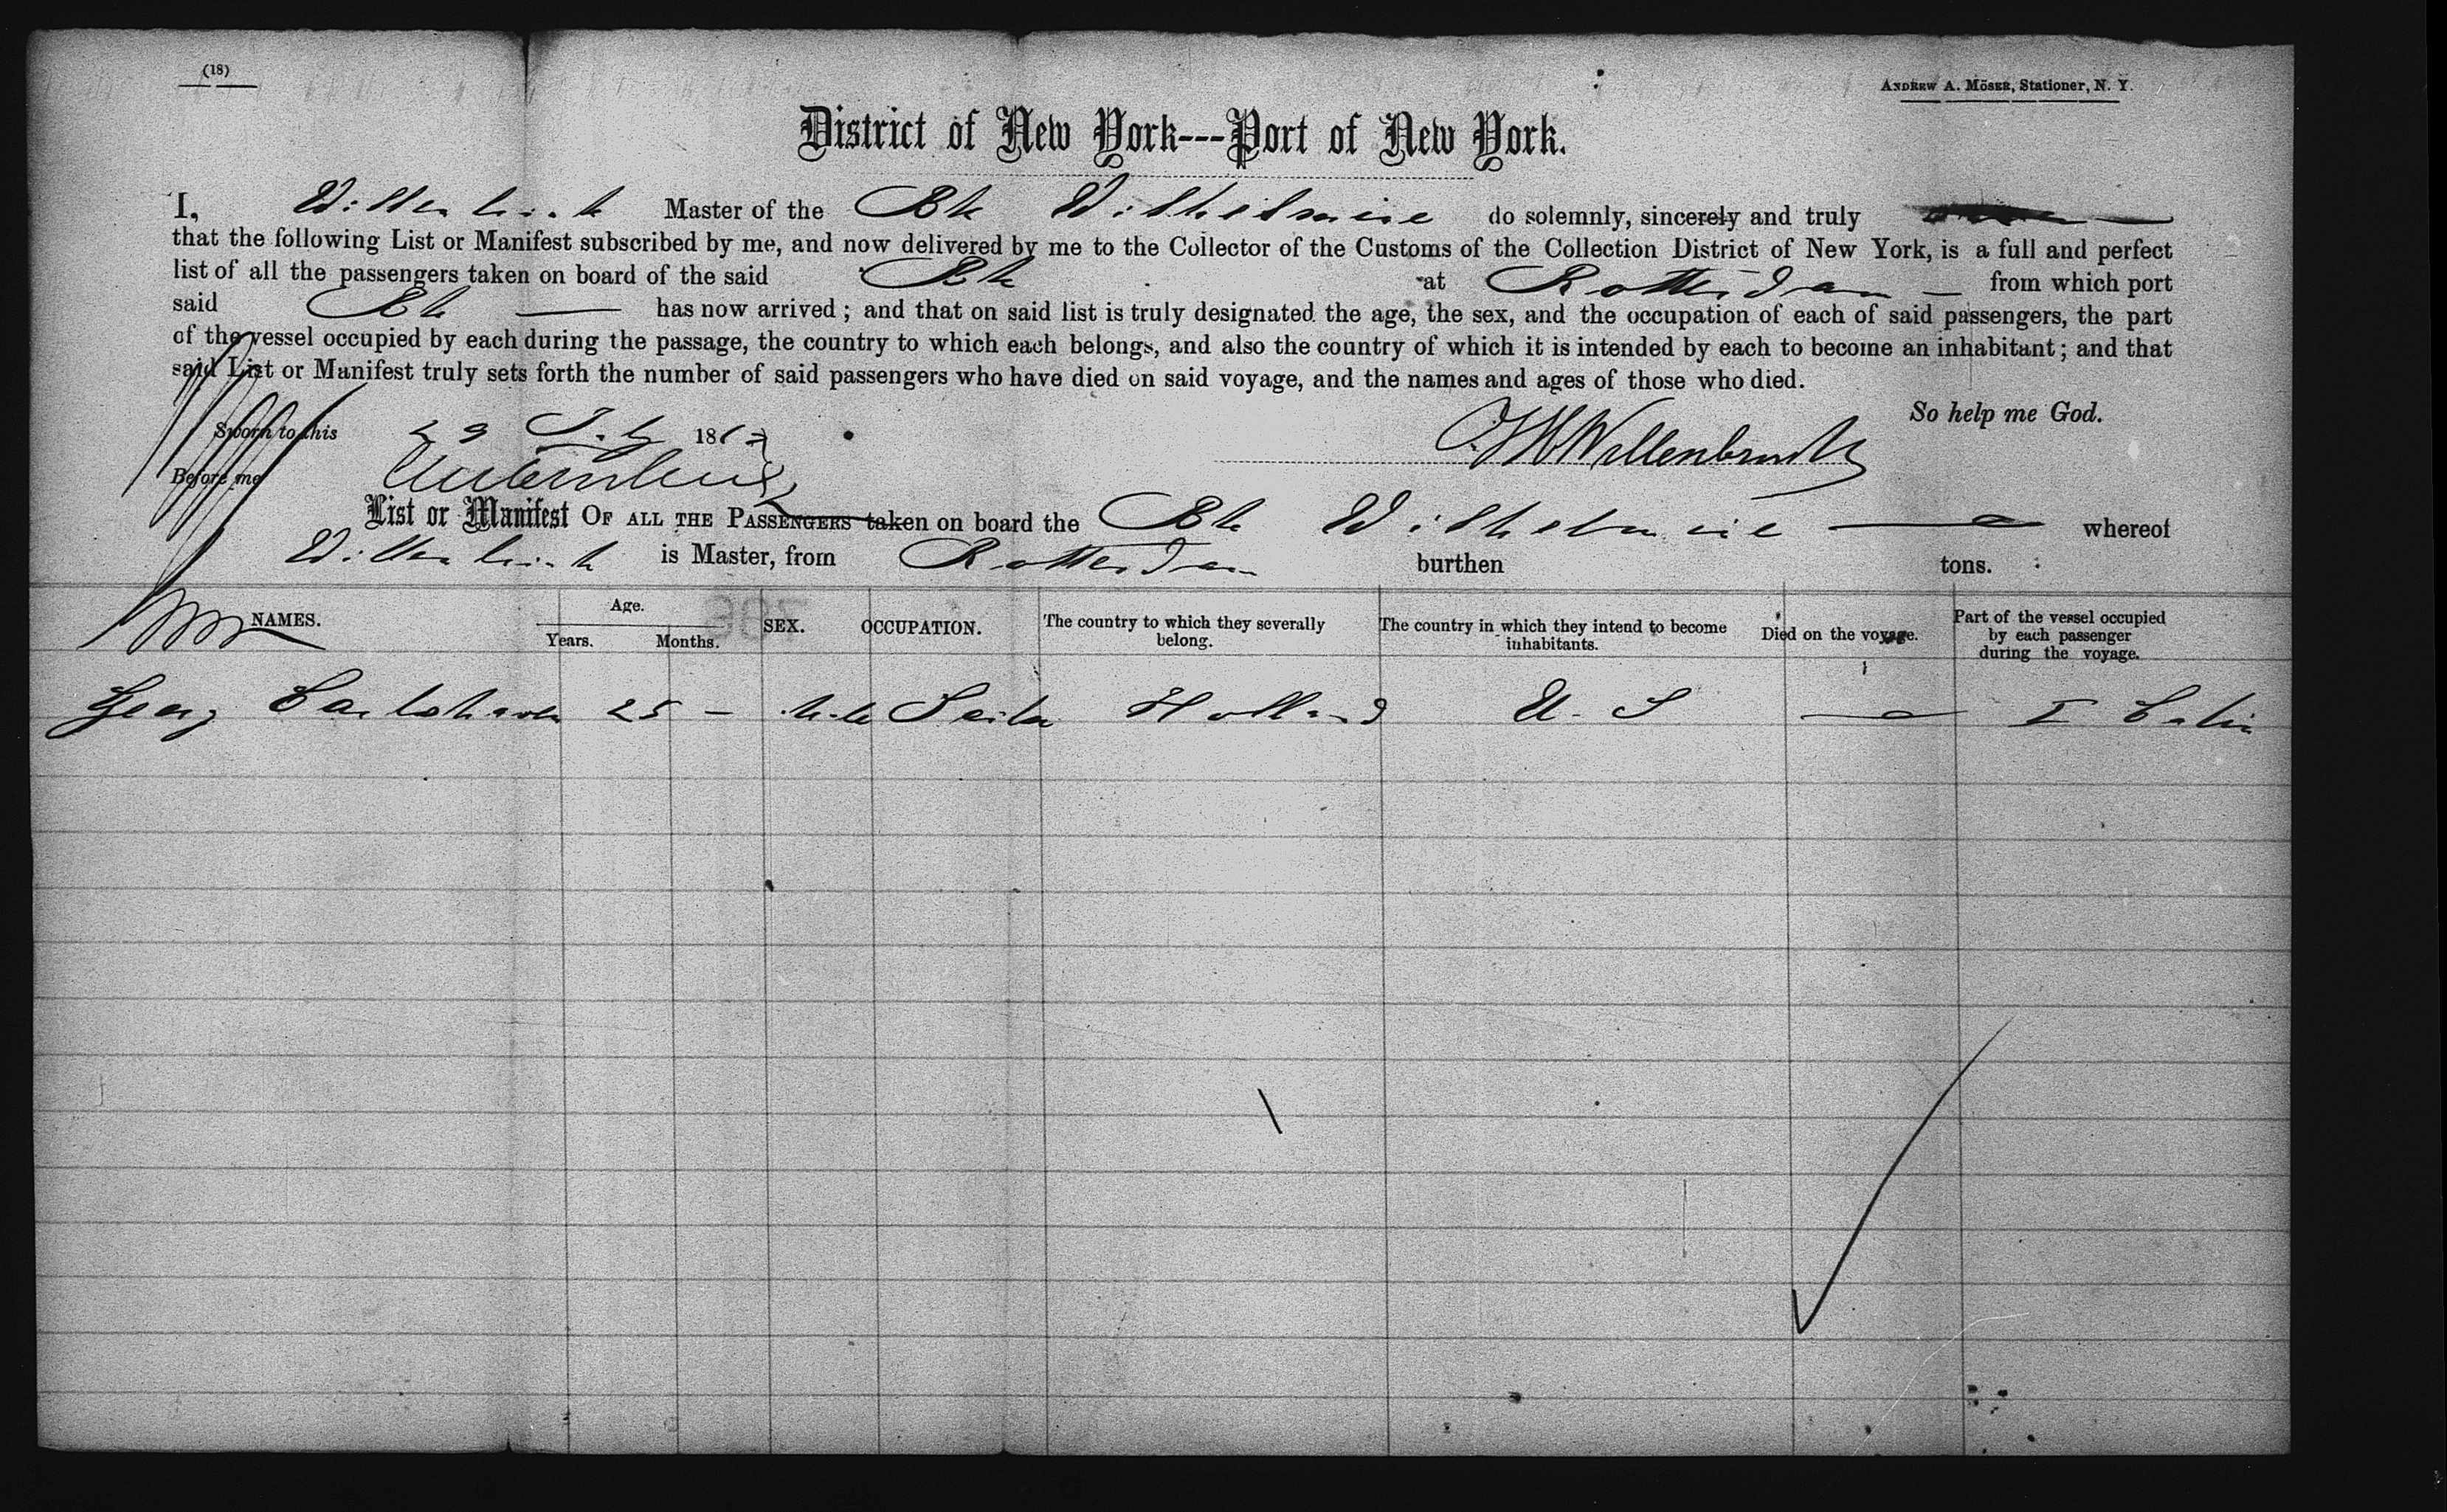 (18)
ANDREW A. MÖSER, Stationer, N. Y.
District of New York---Port of New York.
I, Willenbrink Master of the Bk Wilhelmine do solemnly, sincerely and truly
that the following List or Manifest subscribed by me, and now delivered by me to the Collector of the Customs of the Collection District of New York, is a full and perfect
list of all the passengers taken on board of the said Bk at Rotterdam from which port
said Bk has now arrived; and that on said list is truly designated the age, the sex, and the occupation of each of said passengers, the part
of the vessel occupied by each during the passage, the country to which each belongs, and also the country of which it is intended by each to become an inhabitant; and that
said List or Manifest truly sets forth the number of said passengers who have died on said voyage, and the names and ages of those who died.
So help me God.
Sworn to this 29 186
Before me
List or Manifest OF ALL THE PASSENGERS taken on board the Bk Wilhelmine whereof
Willenbrink is Master, from Rotterdam burthen tons.
NAMES. Age. Years. Months. SEX. OCCUPATION. The country to which they severally belong. The country in which they intend to become inhabitants. Died on the voyage. Part of the vessel occupied by each passenger during the voyage.
Georg 25 - Male Holland U. S — I Cabin